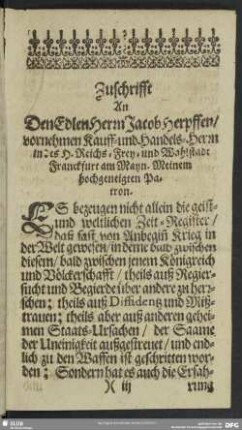 Zuschrifft
An
Den Edlen Herrn Jacob Herpffen/
vornehmen Kauff- und Handels-Herrn
in des H. Reichs, Frey- und Wahlstadt
Franckfurt am Mayn. Meinem
hochgeneigten Pa-
tron.
ES bezeugen nicht allein die geist-
und weltlichen Zeit-Register/
daß fast von Anbegin Krieg in
der Welt gewesen/ in deme bald zwischen
diesem/ bald zwischen jenem Königreich
und Völckerschafft/ theils auß Regier-
sucht und Begierde über andere zu herr-
schen; theils auß Diffidentz und Miß-
trauen; theils aber auß anderen gehei-
men Staats-Ursachen/ der Saame
der Uneinigkeit außgestreuet/ und end-
lich zu den Waffen ist geschritten wor-
den: Sondern hat es auch die Erfah-
)( iij rung
SLUB
DFG